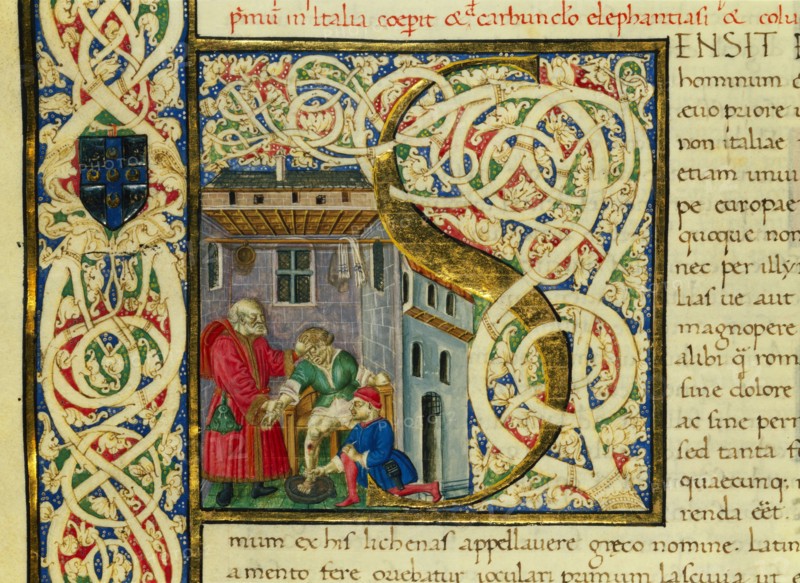 primu in italia coepit & carbunclo elephantiasi & colu
ENSIT
hominum
aeuo priore
non italiae
etiam uniu
pe europae
quoque non
nec per illy
lias ue aut
magnopere
alibi q̃ rom
sine dolore
ac sine per
sed tanta
quaecunq;
renda eēt.
mum ex his lichenas appellauere greco nomine. Latin
amento fere oriebatur ioculari primum lasciuia ut